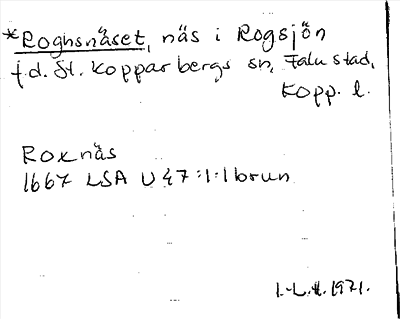 *Roghsnäset, näs i Rogsjön
f.d. St. Kopparbergs sn, Falu stad,
Kopp. l.
Roxnäs
1667 LSA U47:1:1 brun
1.-L.-l. 1971.